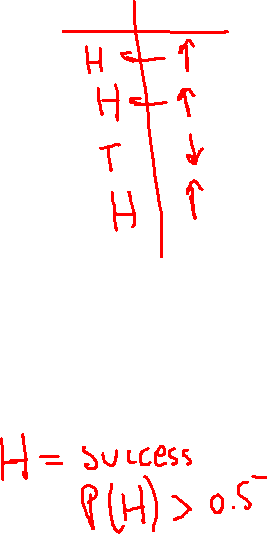 H ↑
H ↑
T ↓
H ↑
H = success
P(H) > 0.5